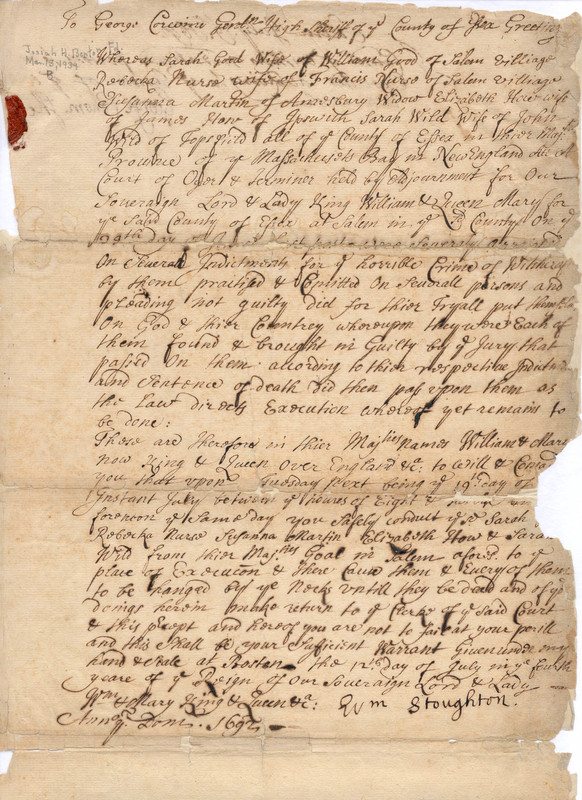 To George Corwine Gentlm High Sheriff of ye County of Essex Greeting
Whereas Sarah Good Wife of William Good of Salem Villiage
Rebecka Nurse wife of Francis Nurse of Salem Villiage
Susanna Martin of Amesbury Widow Elizabeth How wife
of James How of Ipswich Sarah Wild Wife of John
Wild of Topsfield all of ye County of Essex in thier Majties
Province of ye Massachusets Bay in New England Att A
Court of Oyer & Terminer held by Adjournment for Our
Soveraign Lord & Lady King William & Queen Mary for
ye Said County of Essex at Salem in ye Sd County On ye
day
On Severall Indictments for ye horrible Crime of Witchcraft
by them practised & Comitted On Severall persons and
pleading not guilty did for thier Tryall put themselves
On God & thier Countrey whereupon they were Each of
them found & brought in Guilty by ye Jury that
passed On them according to thier respective Indictments
and Sentence of death did then pass upon them as
the Law directs Execution whereof yet remains to
be done:
These are Therefore in thier Majties Names William & Mary
now King & Queen Over England &ca: to will & Comand
you that upon Tuesday Next being ye 19th day of
Instant July between ye houres of Eight &
forenoon ye Same day you Safely conduct ye sd Sarah
Rebecka Nurse Susanna Martin Elizabeth How & Sarah
Wild from thier Majties Goal in Salem aforesd to ye
place of Execution & there Cause them & Every of them
to be hanged by ye Necks untill they be dead and of yor
doings herein make return to ye Clerke of ye Said Court
& this precept and hereof you are not to fail at your perill
and this Shall be your Sufficient Warrant Given under my
hand & Seale at Boston the 12th day of July in ye fourth
yeare of ye Reign of Our Soveraign Lord & Lady
Wm & Mary King & Queen &ca:
Wm Stoughton
Annoqe Dom. 1692